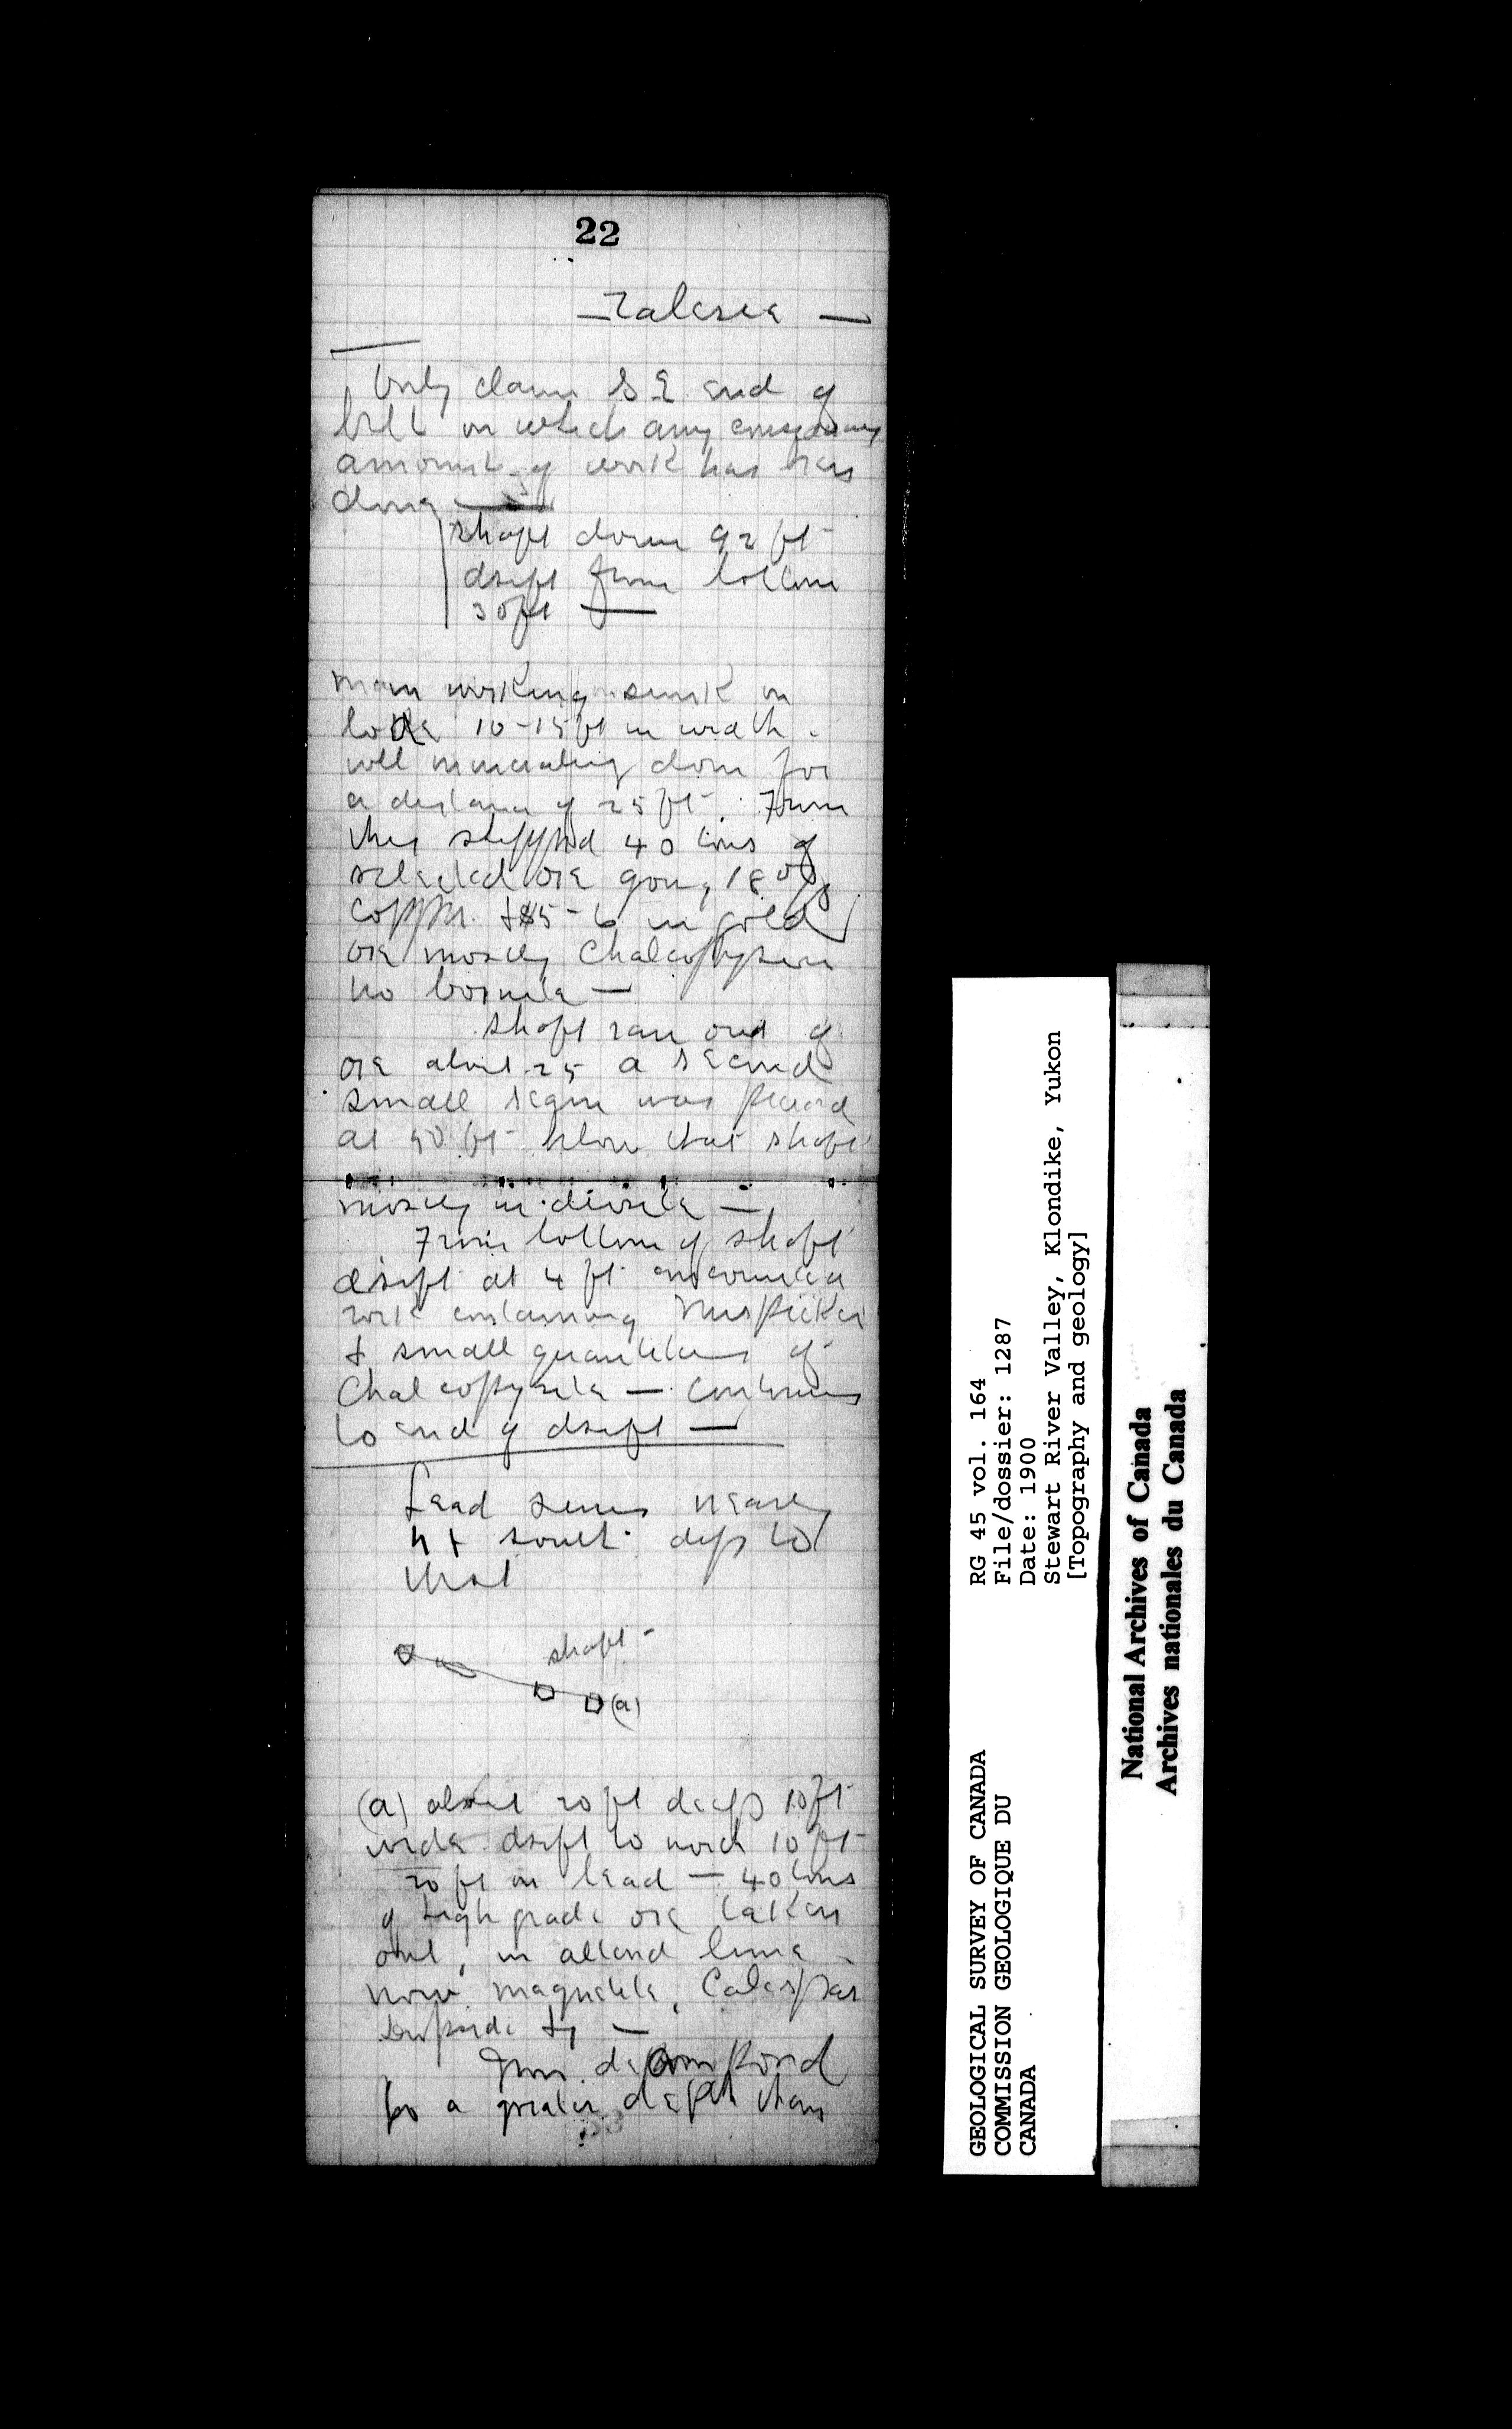 22
— Valeria —
Only claim S E end of
belt on which any
amount of work has been
done —
shaft down 92 ft
drift from bottom
30 ft —
main working sunk on
lode 10-15 ft in width.
well down for
a distance of 25 ft. From
this shipped 40 tons of
selected ore going 18 %
copper + $5-6 in gold
ore mostly Chalcopyrite
no bornite —
shaft ran out of
ore about 25 a second
small seam was found
at 50 ft below that shaft
mostly in —
From bottom of shaft
drift at 4 ft encountered
rock containing Mispickel
+ small quantities of
Chalcopyrite — continues
to end of drift —
Lead seems nearly
n + south dips to
west
shaft
(a)
(a) about 20 ft deep 10 ft
wide drift to north 10 ft
20 ft on lead — 40 tons
of high grade ore taken
out, in altered lime
now magnetite, Calcspar
—
Iron
for a greater depth than
53
GEOLOGICAL SURVEY OF CANADA
COMMISSION GEOLOGIQUE DU
CANADA
RG 45 vol. 164
File/dossier: 1287
Date: 1900
Stewart River Valley, Klondike, Yukon
[Topography and geology]
National Archives of Canada
Archives nationales du Canada